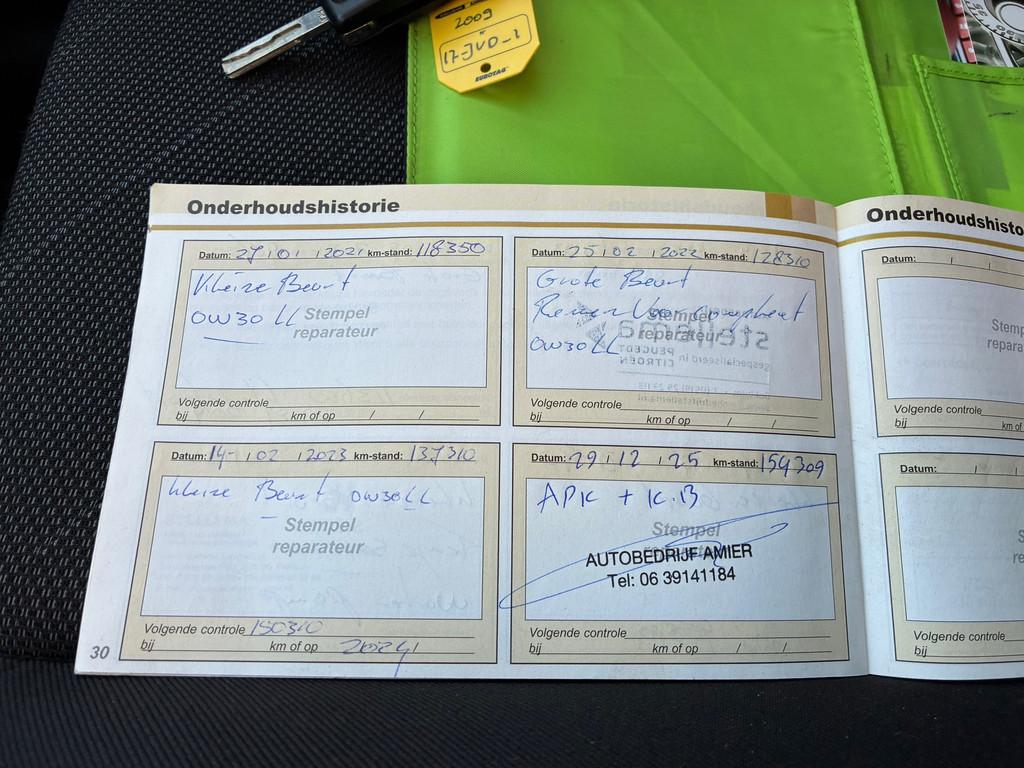 2009
17-JVD-2
EUROTAG
Onderhoudshistorie
Datum: 27 / 01 / 2021 km-stand: 118350
Kleine Beurt
OW30 LL
Stempel
reparateur
Volgende controle
bij km of op / /
Datum: 25 / 02 / 2022 km-stand: 128310
Grote Beurt
Remmen Voor compleet
OW30 LL
Stempel
reparateur
stellema
gespecialiseerd in PEUGEOT
CITROËN
Volgende controle
bij km of op / /
Datum: 14- / 02 / 2023 km-stand: 137310
kleine Beurt OW30LL
Stempel
reparateur
Volgende controle 150310
bij km of op 2024 /
Datum: 29 / 12 / 25 km-stand: 154309
APK + K.B
Stempel
AUTOBEDRIJF AMIER
Tel: 06 39141184
Volgende controle
bij km of op / /
30
Onderhoudshisto
Datum: / /
Stemp
repara
Volgende controle
bij km of
Datum: / /
S
re
Volgende controle
bij